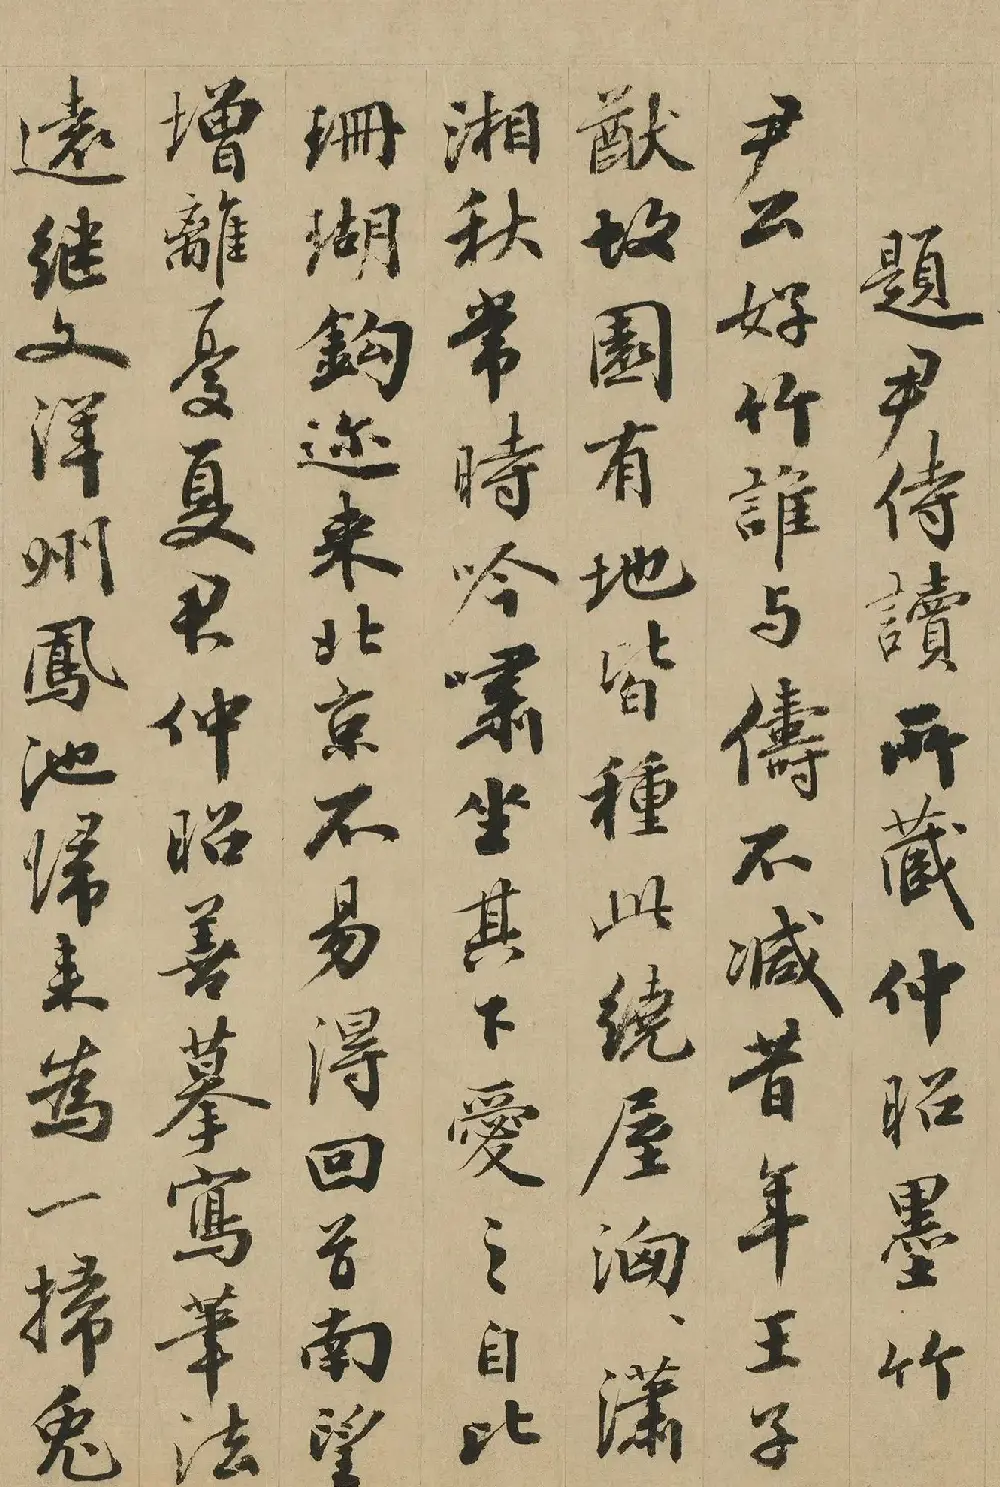 題尹侍讀所藏仲昭墨竹
尹公好竹誰与儔不減昔年王子
猷故園有地皆種此繞屋洶、瀟
湘秋常時吟嘯坐其下愛之自比
珊瑚鈎迩来北京不易得回首南望
增離憂夏君仲昭善摹寫筆法
遠继文洋州鳳池歸来為一掃兔